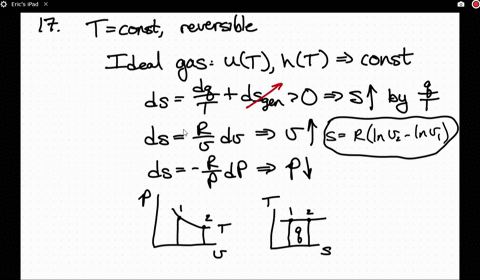 Eric's iPad
17. T=const, reversible
Ideal gas: u(T), h(T) ⇒ const
ds = dq/T + ds_gen > 0 ⇒ s↑ by q/T
ds = R/v dv ⇒ v↑ s = R(ln v₂ - ln v₁)
ds = -R/P dP ⇒ P↓
P 1 2 T v
T 1 2 q s